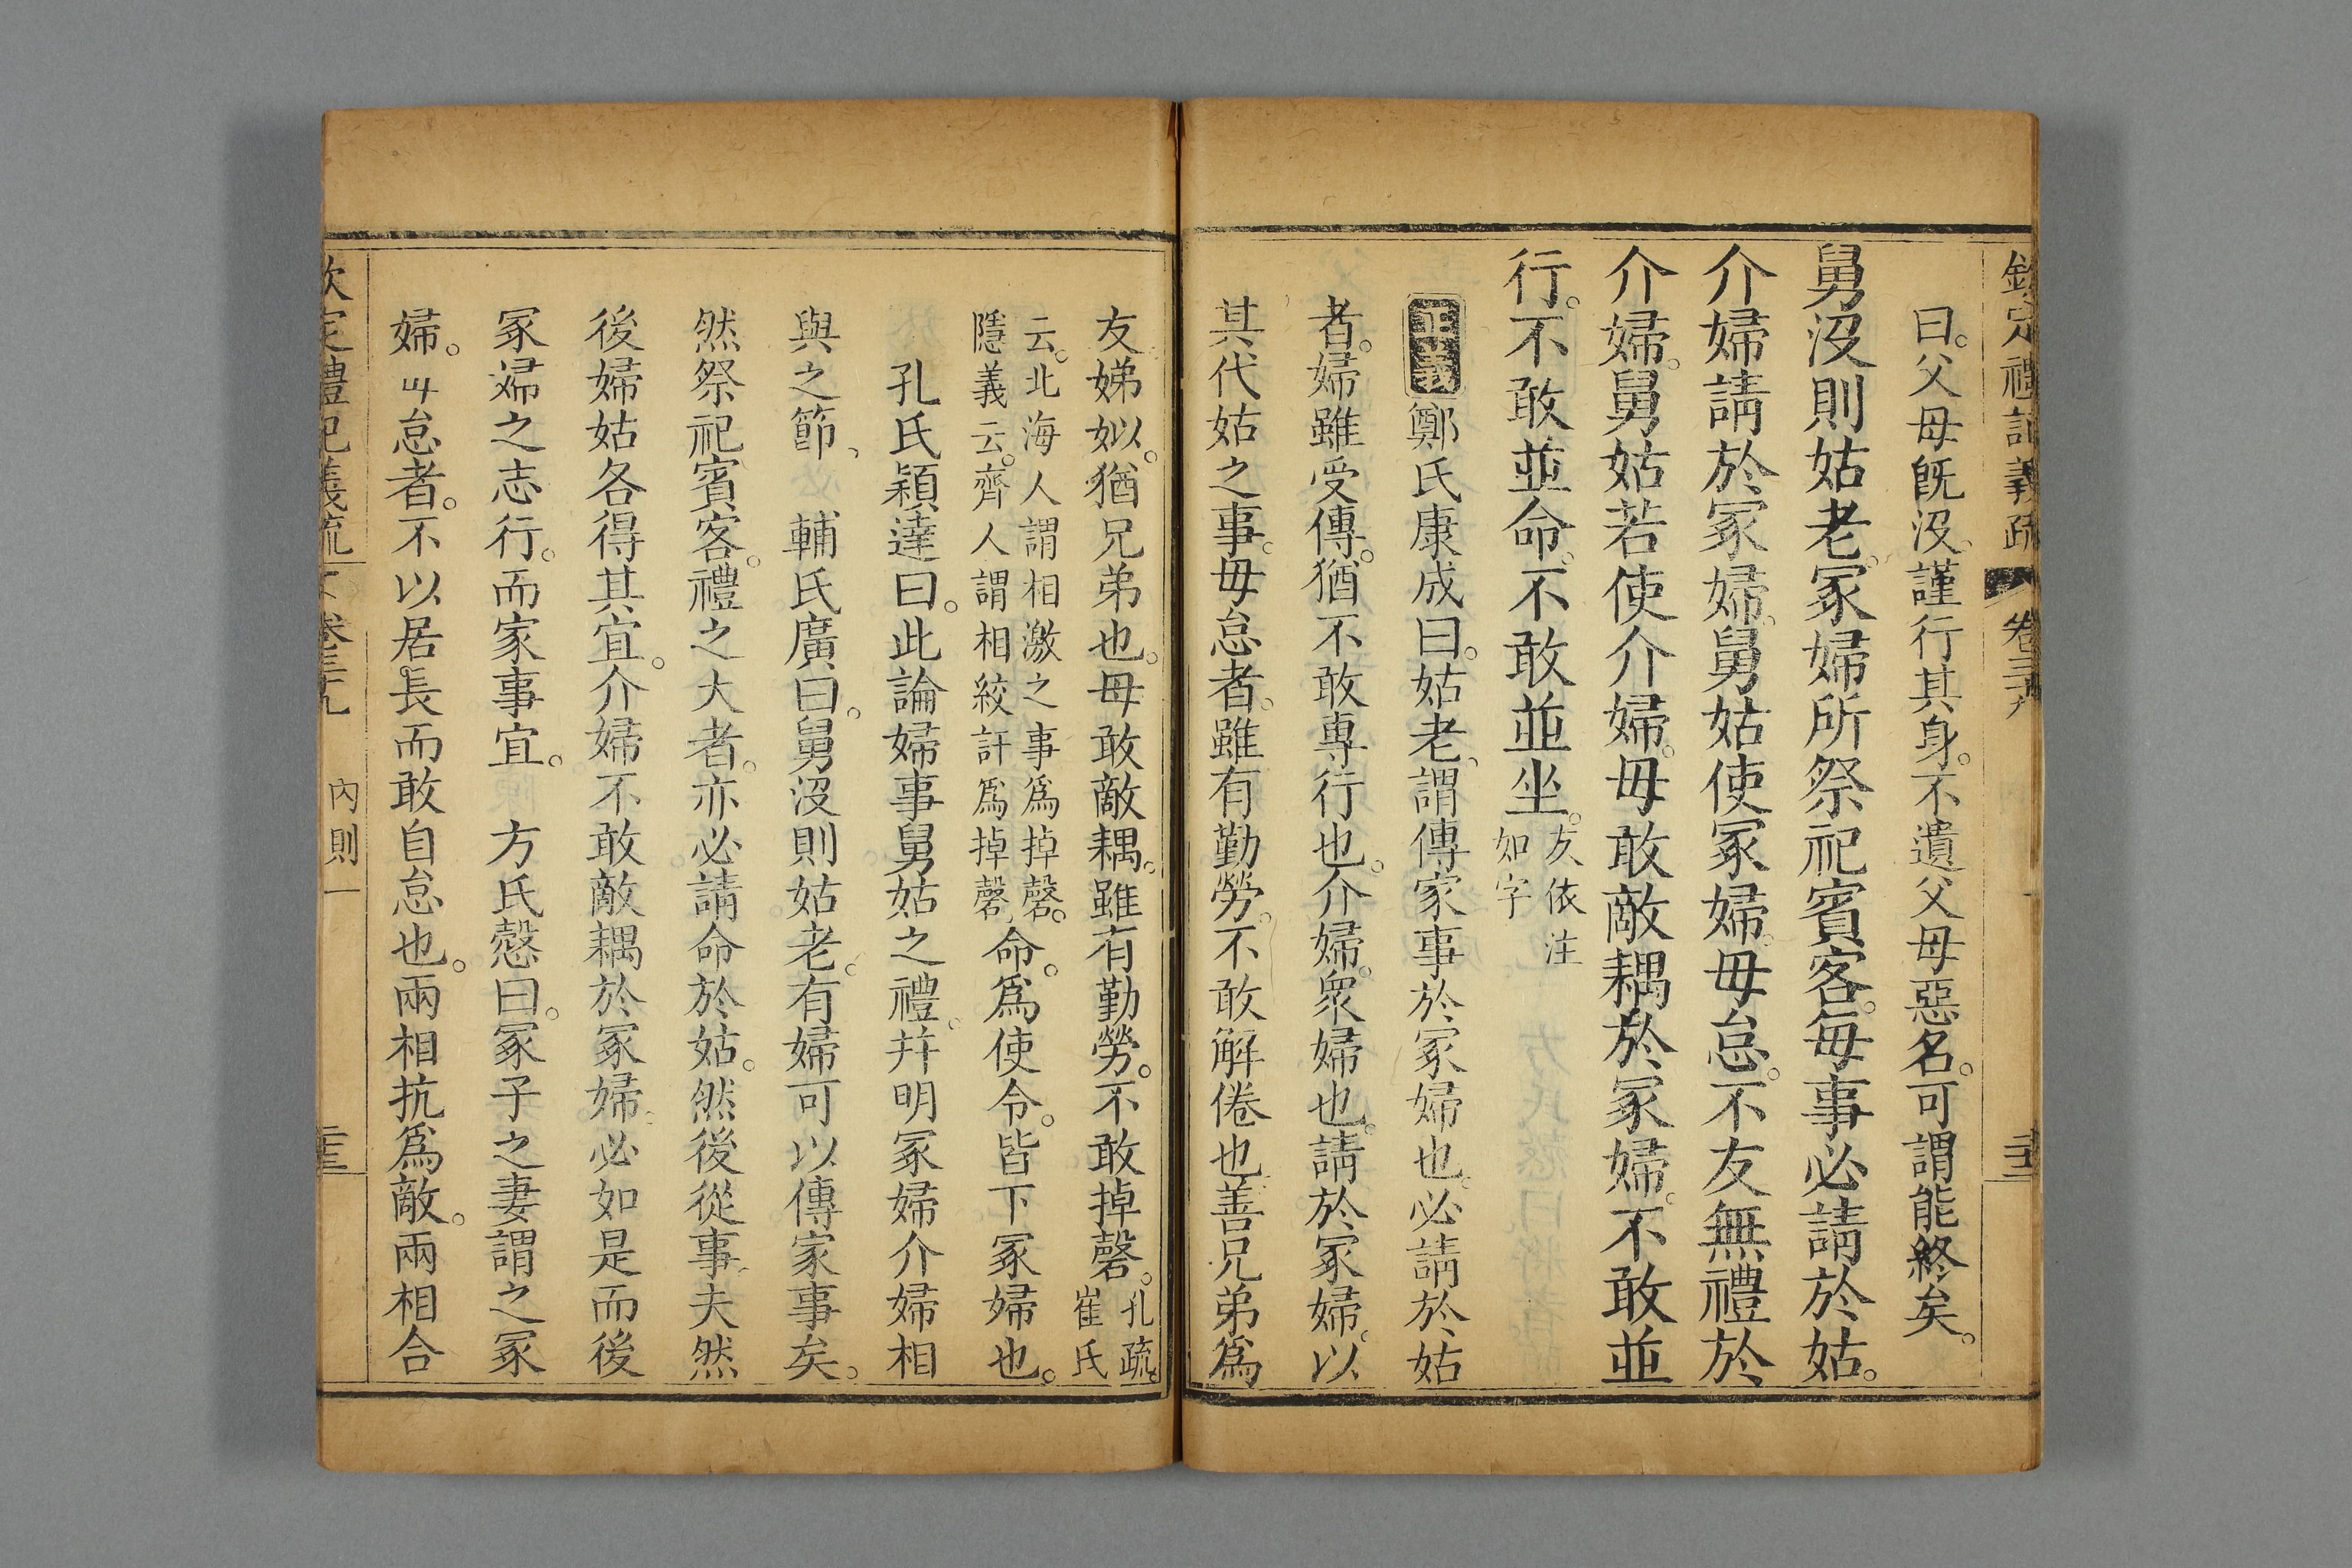 欽定禮記義疏 卷三十九
曰。父母旣沒、謹行其身。不遺父母惡名。可謂能終矣。
舅沒則姑老。冢婦所祭祀賓客。每事必請於姑。
介婦請於冢婦、舅姑使冢婦。毋怠。不友無禮於
介婦。舅姑若使介婦。毋敢敵耦於冢婦。不敢並
行。不敢並命、不敢並坐。友依注如字
正義 鄭氏康成曰。姑老、謂傳家事於冢婦也。必請於姑
者。婦雖受傳。猶不敢專行也。介婦。衆婦也。請於冢婦。以
其代姑之事。毋怠者。雖有勤勞。不敢解倦也。善兄弟爲
友娣姒。猶兄弟也。毋敢敵耦。雖有勤勞。不敢掉磬。孔疏。崔氏
云。北海人謂相激之事爲掉磬。隱義云。齊人謂相絞訐爲掉磬、命。爲使令。皆下冢婦也。
孔氏穎達曰。此論婦事舅姑之禮。幷明冢婦介婦相
與之節、 輔氏廣曰。舅沒則姑老。有婦可以傳家事矣。
然祭祀賓客。禮之大者。亦必請命於姑。然後從事、夫然
後婦姑各得其宜。介婦不敢敵耦於冢婦、必如是而後
冢婦之志行。而家事宜。 方氏慤曰。冢子之妻謂之冢
婦。毋怠者。不以居長而敢自怠也。兩相抗爲敵。兩相合
欽定禮記義疏 卷三十九 內則一